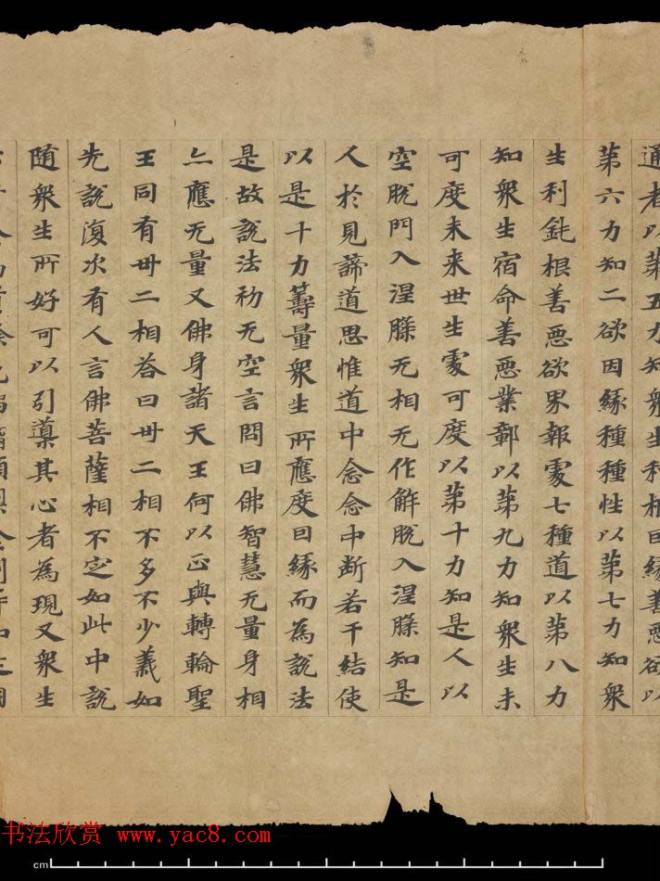 通者以第五力知衆生種根因緣善惡欲以
第六力知二欲因緣種種性以第七力知衆
生利鈍根善惡欲界報處七種道以第八力
知衆生宿命善惡業鄣以第九力知衆生未
可度未来世生處可度以第十力知是人以
空脫門入涅槃无相无作解脫入涅槃知是
人於見諦道思惟道中念念中斷若干結使
以是十力籌量衆生所應度因緣而為說法
是故說法初无空言問曰佛智慧无量身相
亦應无量又佛身諸天王何以正與轉輪聖
王同有卅二相荅曰卅二相不多不少義如
先說復次有人言佛菩薩相不定如此中說
随衆生所好可以引導其心者為現又衆生
书法欣赏 www.yac8.com
cm